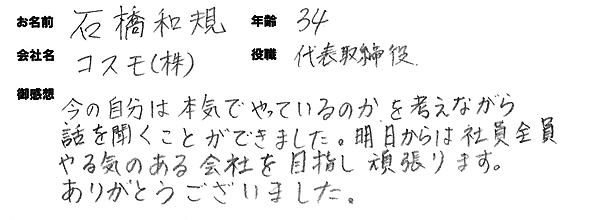 お名前 石橋和規 年齢 34
会社名 コスモ(株) 役職 代表取締役.
御感想
今の自分は本気でやっているのか を考えながら
話を聞くことができました。明日からは社員全員
やる気のある会社を目指し頑張ります。
ありがとうございました。